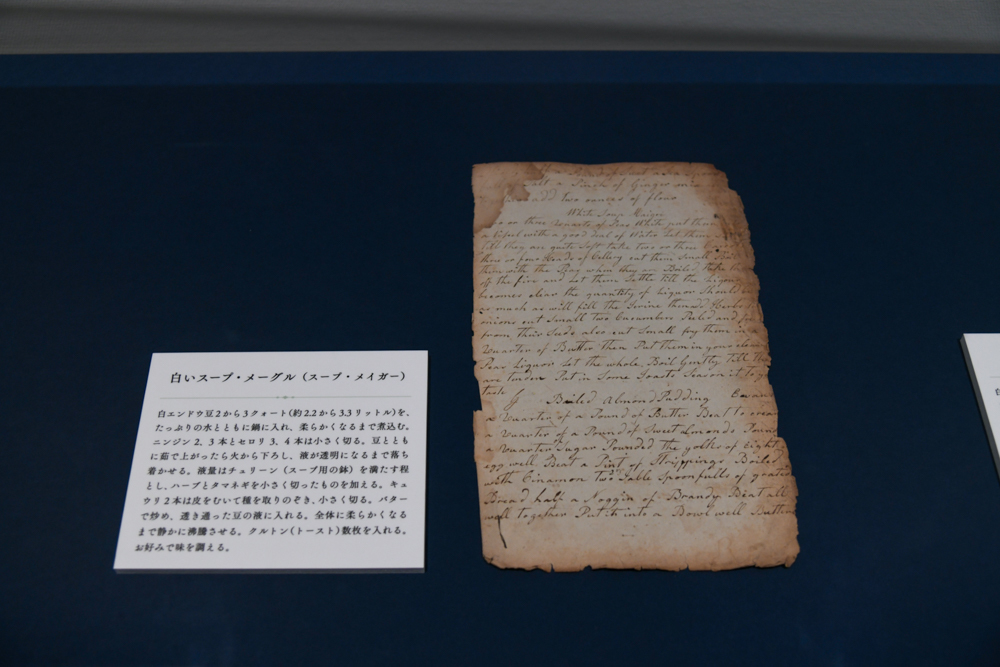 白いスープ・メーグル（スープ・メイガー）
白エンドウ豆2から3クォート(約2.2から3.3リットル)を、
たっぷりの水とともに鍋に入れ、柔らかくなるまで煮込む。
ニンジン 2、3 本とセロリ 3、4 本は小さく切る。豆ととも
に茹で上がったら火から下ろし、液が透明になるまで落ち
着かせる。液量はチュリーン（スープ用の鉢）を満たす程
とし、ハーブとタマネギを小さく切ったものを加える。キュ
ウリ 2 本は皮をむいて種を取りのぞき、小さく切る。バター
で炒め、透き通った豆の液に入れる。全体に柔らかくなる
まで静かに沸騰させる。クルトン(トースト)数枚を入れる。
お好みで味を調える。
a Pinch of Ginger
add two ounces of flour
White Soup
or three Quarts of Peas White put them
with a good deal of Water Let them
till they are quite Soft take two or three
three or four Heads of Cellery cut them Small
them with the Peas when they are Boiled
off the fire and Let them Settle till the Liquor
becomes clear the quantity of Liquor Should
so much as will fill the
onions cut Small two Cucumbers Peeled and
from their Seeds also cut Small fry them in
Quarter of Butter then Put them in your clear
Peas Liquor Let the whole Boil Gently till they
are tender Put in Some Season it to
taste
Boiled Almond Pudding
a Quarter of a Pound of Butter Beat to cream
a Quarter of a Pound of Sweet Almonds
a Quarter Sugar Pounded the yolks of Eight
egg well Beat a Pint of Boiled
with Cinamon two Table Spoonfulls of grated
Bread half a Noggin of Brandy Beat all
well together Put it into a Bowl well Butter